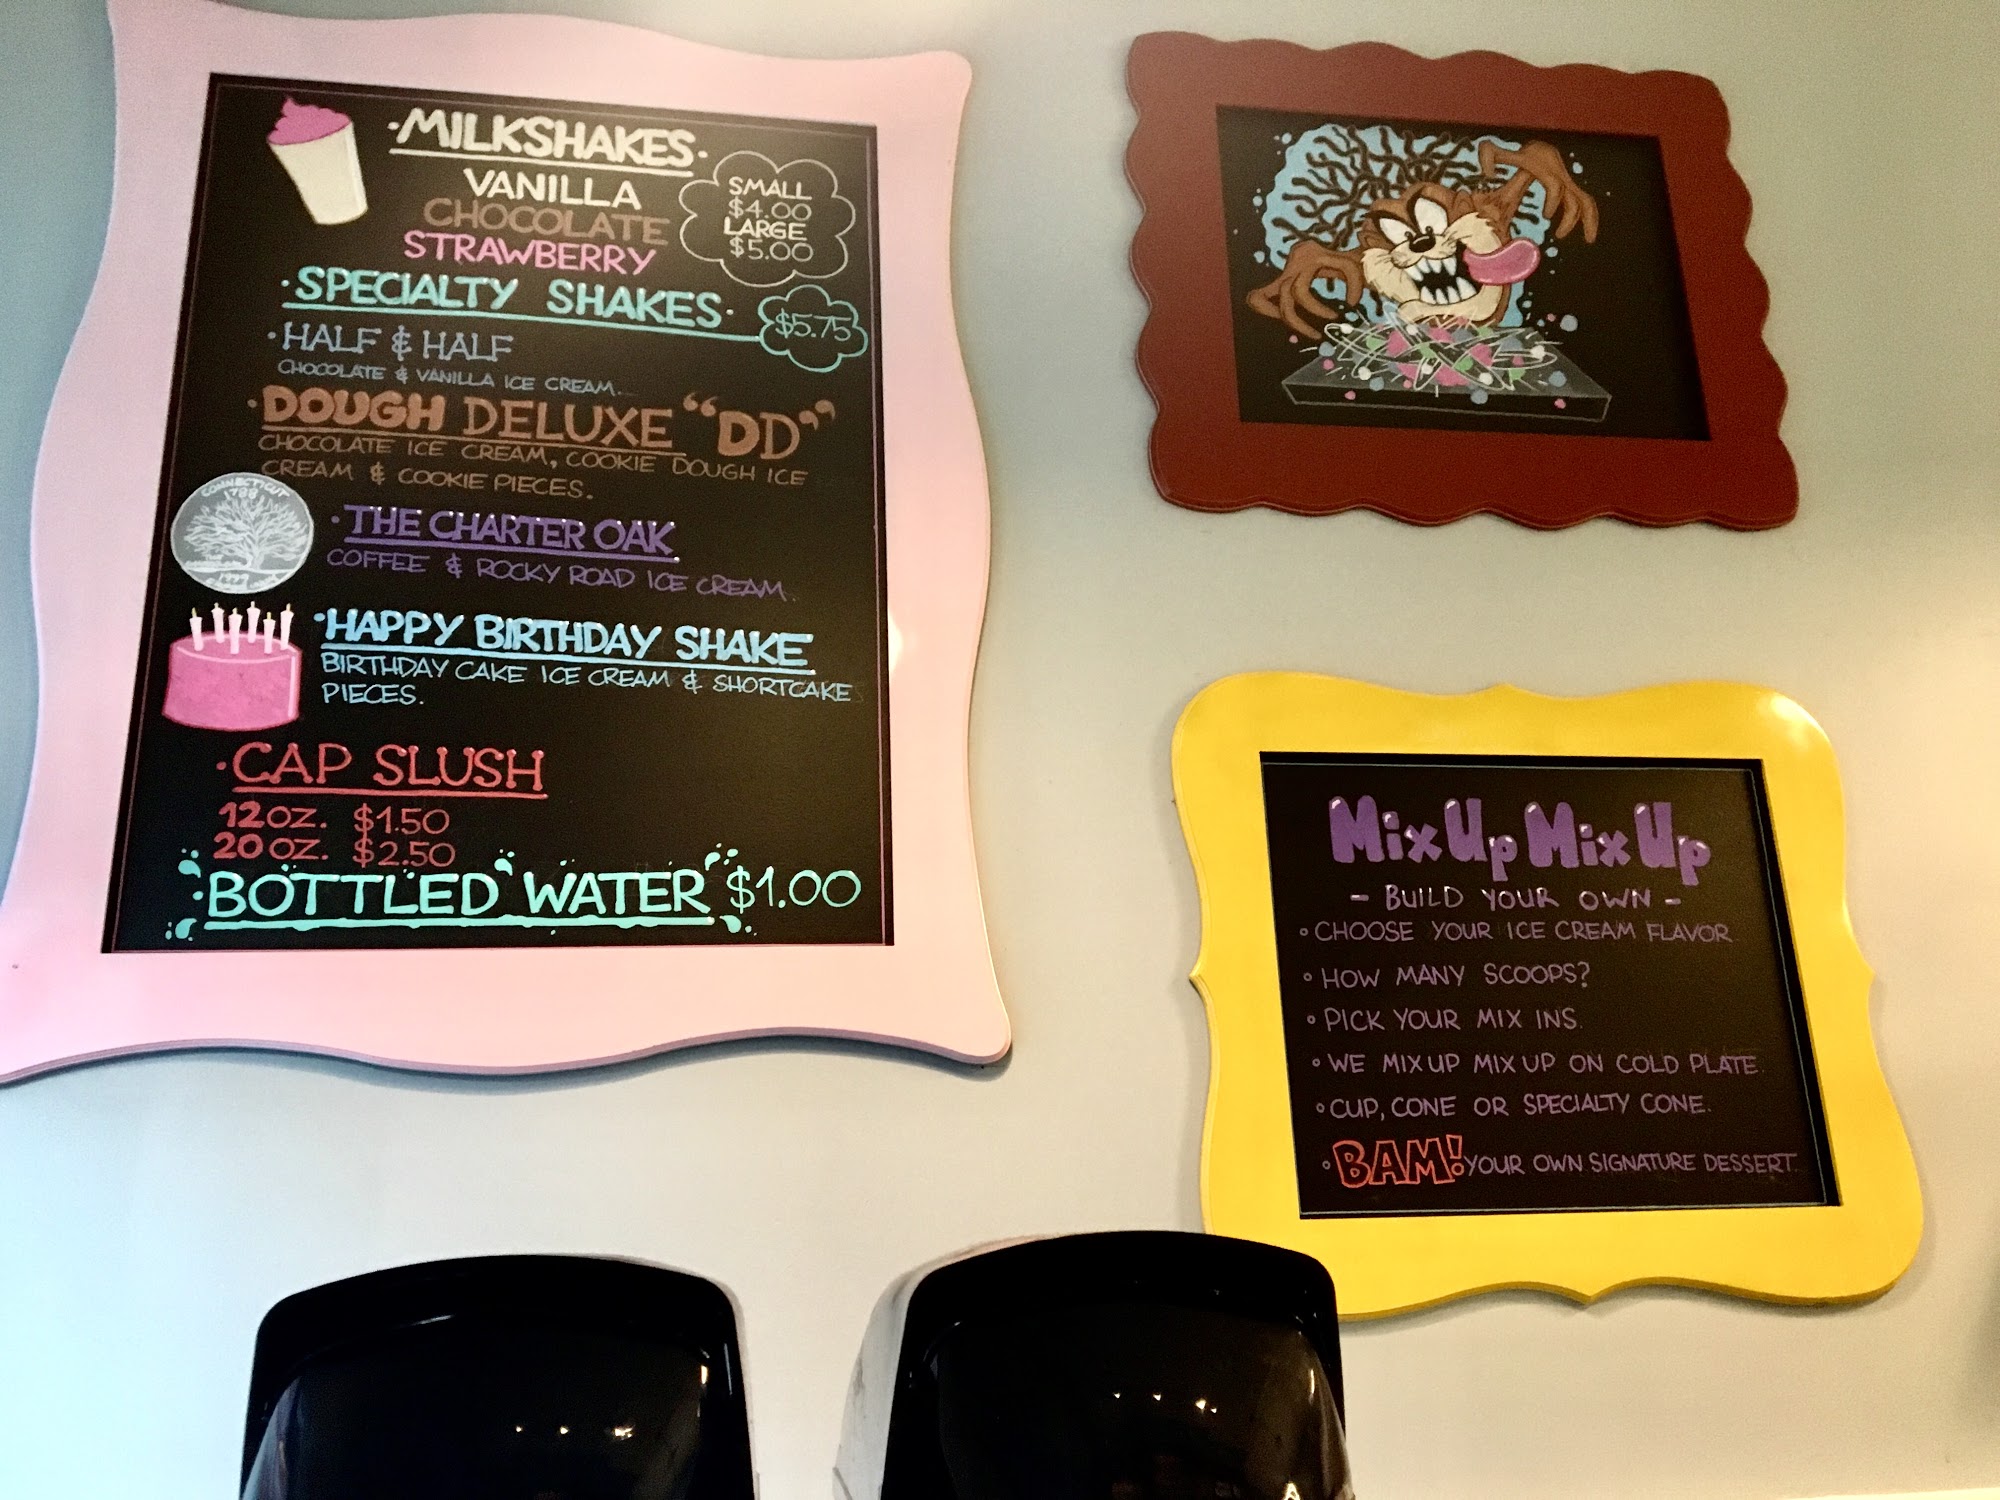 ·MILKSHAKES·
VANILLA
CHOCOLATE
STRAWBERRY
SMALL
$4.00
LARGE
$5.00
·SPECIALTY SHAKES·
$5.75
·HALF & HALF
CHOCOLATE & VANILLA ICE CREAM...
·DOUGH DELUXE "DD"
CHOCOLATE ICE CREAM, COOKIE DOUGH ICE
CREAM & COOKIE PIECES.
CONNECTICUT
1788
1999
·THE CHARTER OAK
COFFEE & ROCKY ROAD ICE CREAM.
·HAPPY BIRTHDAY SHAKE
BIRTHDAY CAKE ICE CREAM & SHORTCAKE
PIECES.
·CAP SLUSH
12 OZ. $1.50
20 OZ. $2.50
BOTTLED WATER $1.00
Mix Up Mix Up
- BUILD YOUR OWN -
◦ CHOOSE YOUR ICE CREAM FLAVOR.
◦ HOW MANY SCOOPS?
◦ PICK YOUR MIX INS.
◦ WE MIX UP MIX UP ON COLD PLATE.
◦ CUP, CONE OR SPECIALTY CONE.
◦ BAM! YOUR OWN SIGNATURE DESSERT.